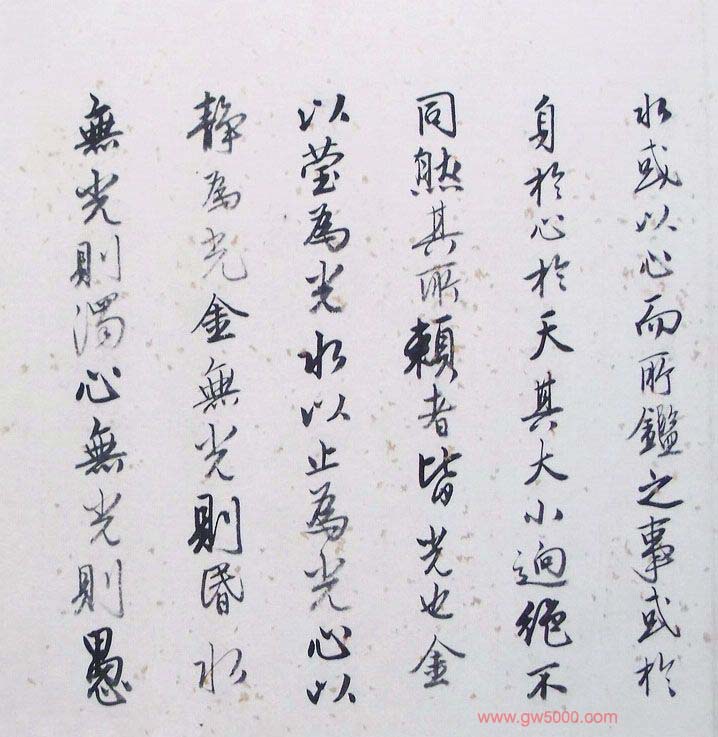 水或以心而所鑑之事或於
身於心於天其大小迥絶不
同然其所賴者皆光也金
以瑩為光水以止為光心以
靜為光金無光則昏水
無光則濁心無光則愚
www.gw5000.com